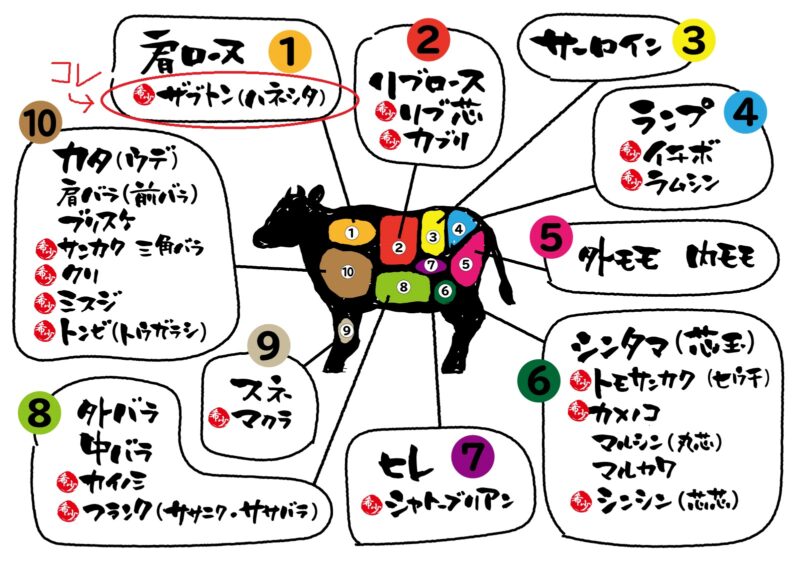 コレ
肩ロース 1
希少 ザブトン(ハネシタ)
2
リブロース
希少 リブ芯
希少 カブリ
サーロイン 3
ランプ 4
希少 イチボ
希少 ラムシン
5
外モモ 内モモ
6
シンタマ(芯玉)
希少 トモサンカク(ヒウチ)
希少 カメノコ
マルシン(丸芯)
マルカワ
希少 シンシン(芯芯)
ヒレ 7
希少 シャトーブリアン
8
外バラ
中バラ
希少 カイノミ
希少 フランク(ササニク・ササバラ)
9
スネ
希少 マクラ
10
カタ(ウデ)
肩バラ(前バラ)
ブリスケ
希少 サンカク 三角バラ
希少 クリ
希少 ミスジ
希少 トンビ(トウガラシ)
1
2
3
4
5
6
7
8
9
10